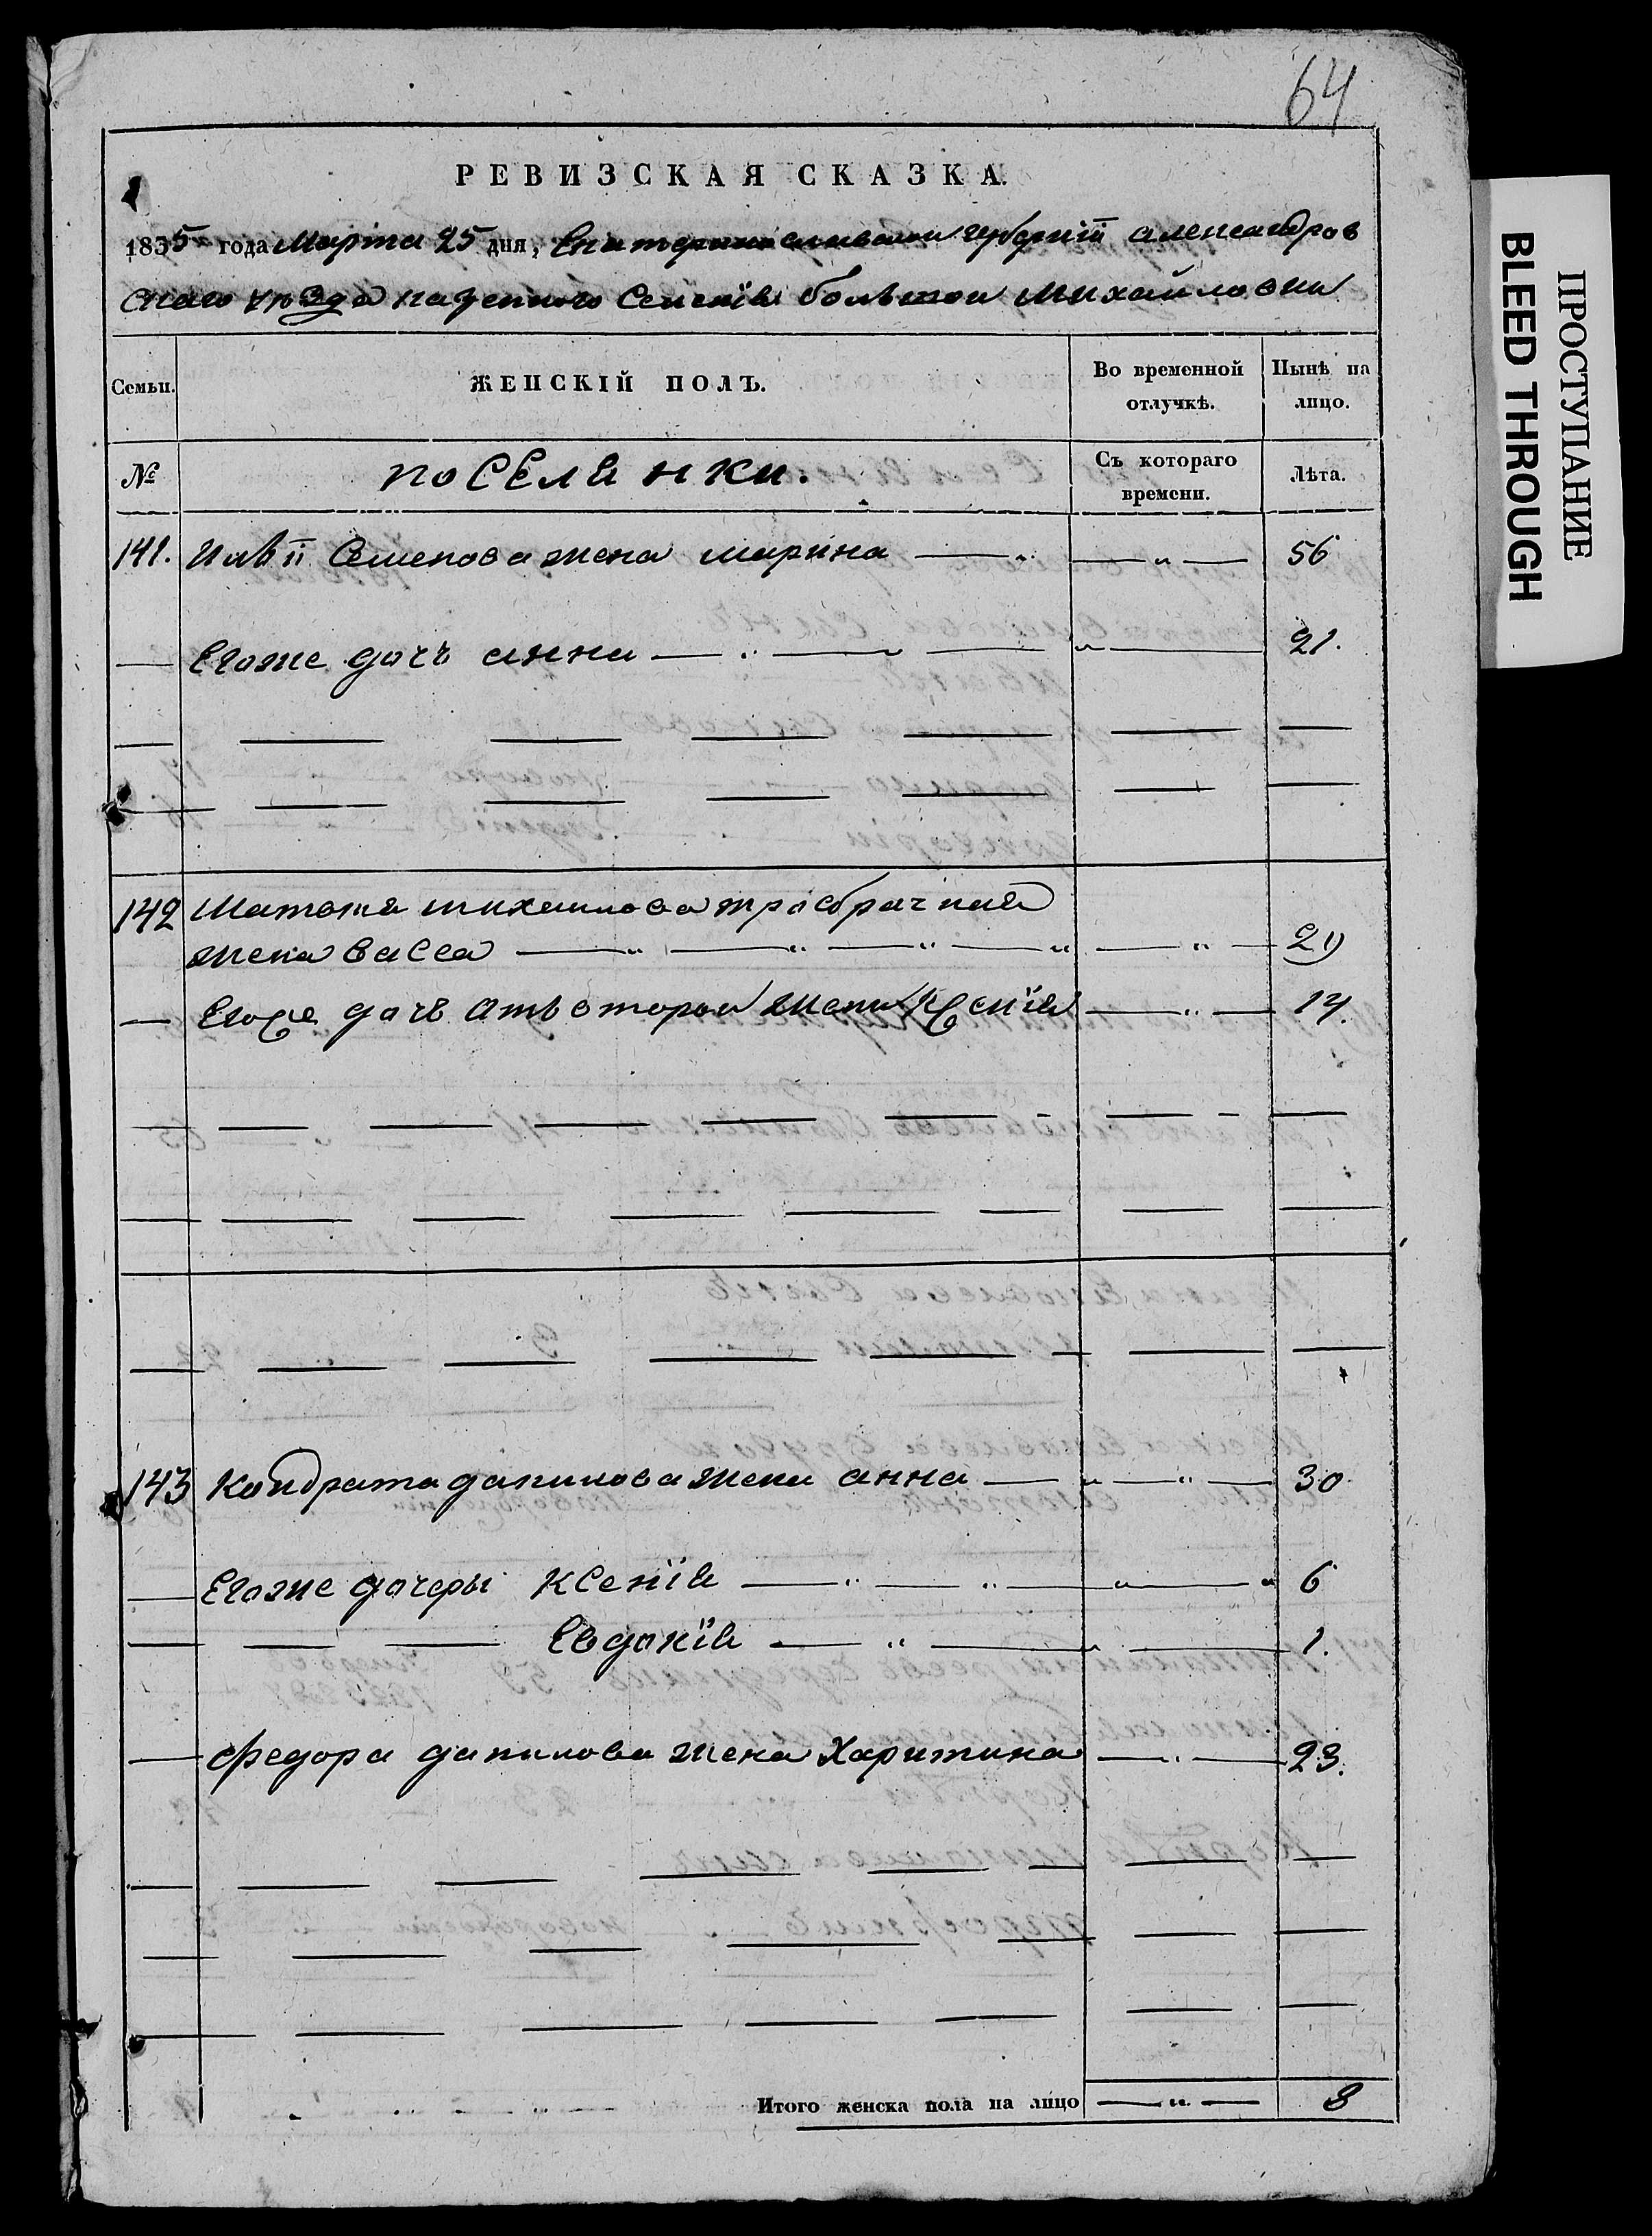 64
РЕВИЗСКАЯ СКАЗКА.
1835 года Марта 25 дня, Екатеринославской губерніи александров
скаго уѣзда казенного Селенія большой михайловки
Семьи. ЖЕНСКІЙ ПОЛЪ. Во временной отлучкѣ. Нынѣ на лицо.
№ поселянки. Съ котораго времени. Лѣта.
141. Семенова жена марина — 〃 — 56
— Егоже дочъ анна — 〃 — 21.
142 михаилова жена васса — 〃 — 29
— Егоже дочь атъ второй жены Ксенія — 〃 — 14.
143 Кондрата данилова жена анна — 〃 — 30
— Егоже дочеры Ксенія — 〃 — 6
— Евдокія — 〃 — 1.
— федора данилова жена Харитина — 〃 — 23.
Итого женска пола на лицо — 〃 — 8
ПРОСТУПАНИЕ
BLEED THROUGH